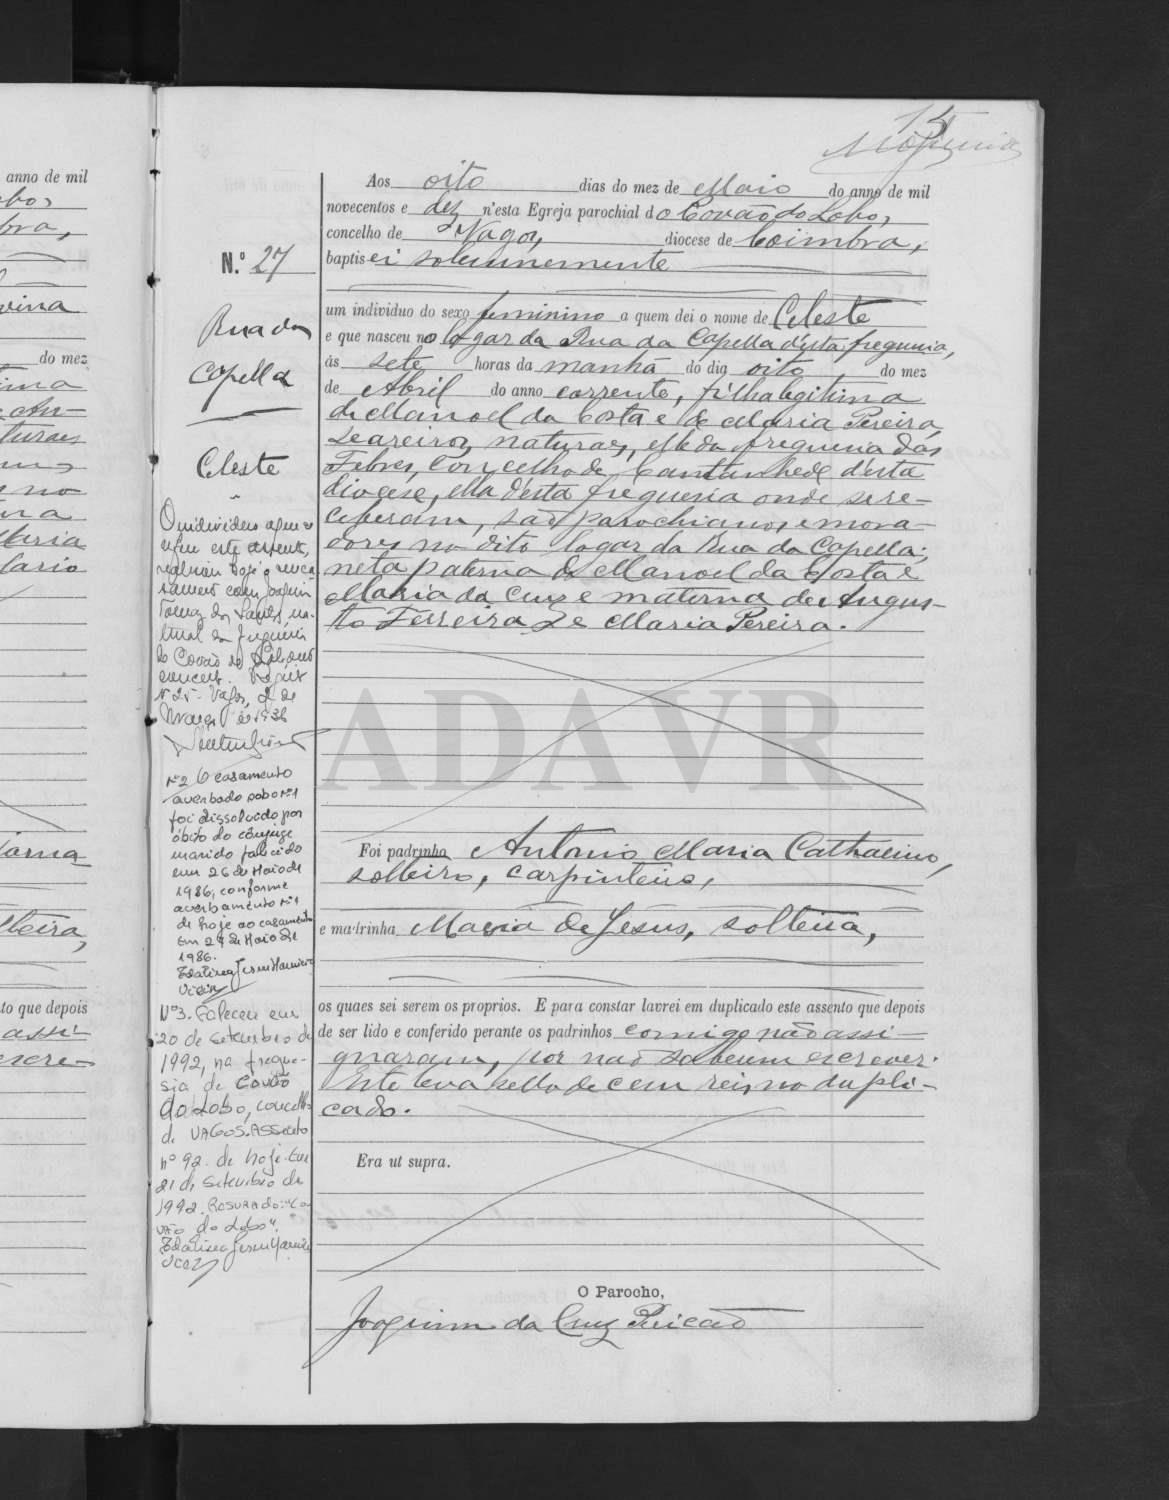 15
Aos oito dias do mez de Maio do anno de mil
novecentos e dez n'esta Egreja parochial do Covão do Lobo,
concelho de Vagos, diocese de Coimbra,
baptisei solemnemente
N.º 27
um individuo do sexo feminino a quem dei o nome de Celeste
e que nasceu no logar da Rua da Capella d'esta freguesia,
ás sete horas da manhã do dia oito do mez
de Abril do anno corrente, filha legitima
de Manoel da Costa e de Maria Pereira,
Seareiros, naturaes, elle da freguesia das
Febres, Concelho de Cantanhede d'esta
diocese, ella d'esta freguesia onde se re-
ceberam, são parochianos, e mora-
dores no dito logar da Rua da Capella;
neta paterna de Manoel da Costa e
Maria da Cruz e materna de Augus-
to Ferreira e Maria Pereira.
Rua da
Capella
Celeste
O individuo a que se
refere este assento,
hoje o seu ca-
samento com Joaquim
dos Santos, na-
tural da freguesia
do Covão do Lobo
concelho.
Nº 25 - Vagos, 2 de
Março de 1936
ADAVR
Nº 2 O casamento
averbado sob o nº 1
foi dissolvido por
óbito do cônjuge
marido falecido
em 26 de Maio de
1986, conforme
averbamento nº 1
de hoje ao casamento
Em 27 de Maio de
1986.
Nº 3. Faleceu em
20 de Setembro de
1992, na fregue-
sia de Covão
do Lobo, concelho
de VAGOS. Assento
nº 92 de hoje. Em
21 de Setembro de
1992. Rasurado: "Co-
vão do Lobo".
Foi padrinho Antonio Maria Catharino,
solteiro, carpinteiro,
e madrinha Maria de Jesus, solteira,
os quaes sei serem os proprios. E para constar lavrei em duplicado este assento que depois
de ser lido e conferido perante os padrinhos comigo não assi-
gnaram, por não saberem escrever.
Este leva sello de cem reis, no dupli-
cado.
Era ut supra.
O Parocho,
Joaquim da Cruz
anno de mil
do mez
to que depois